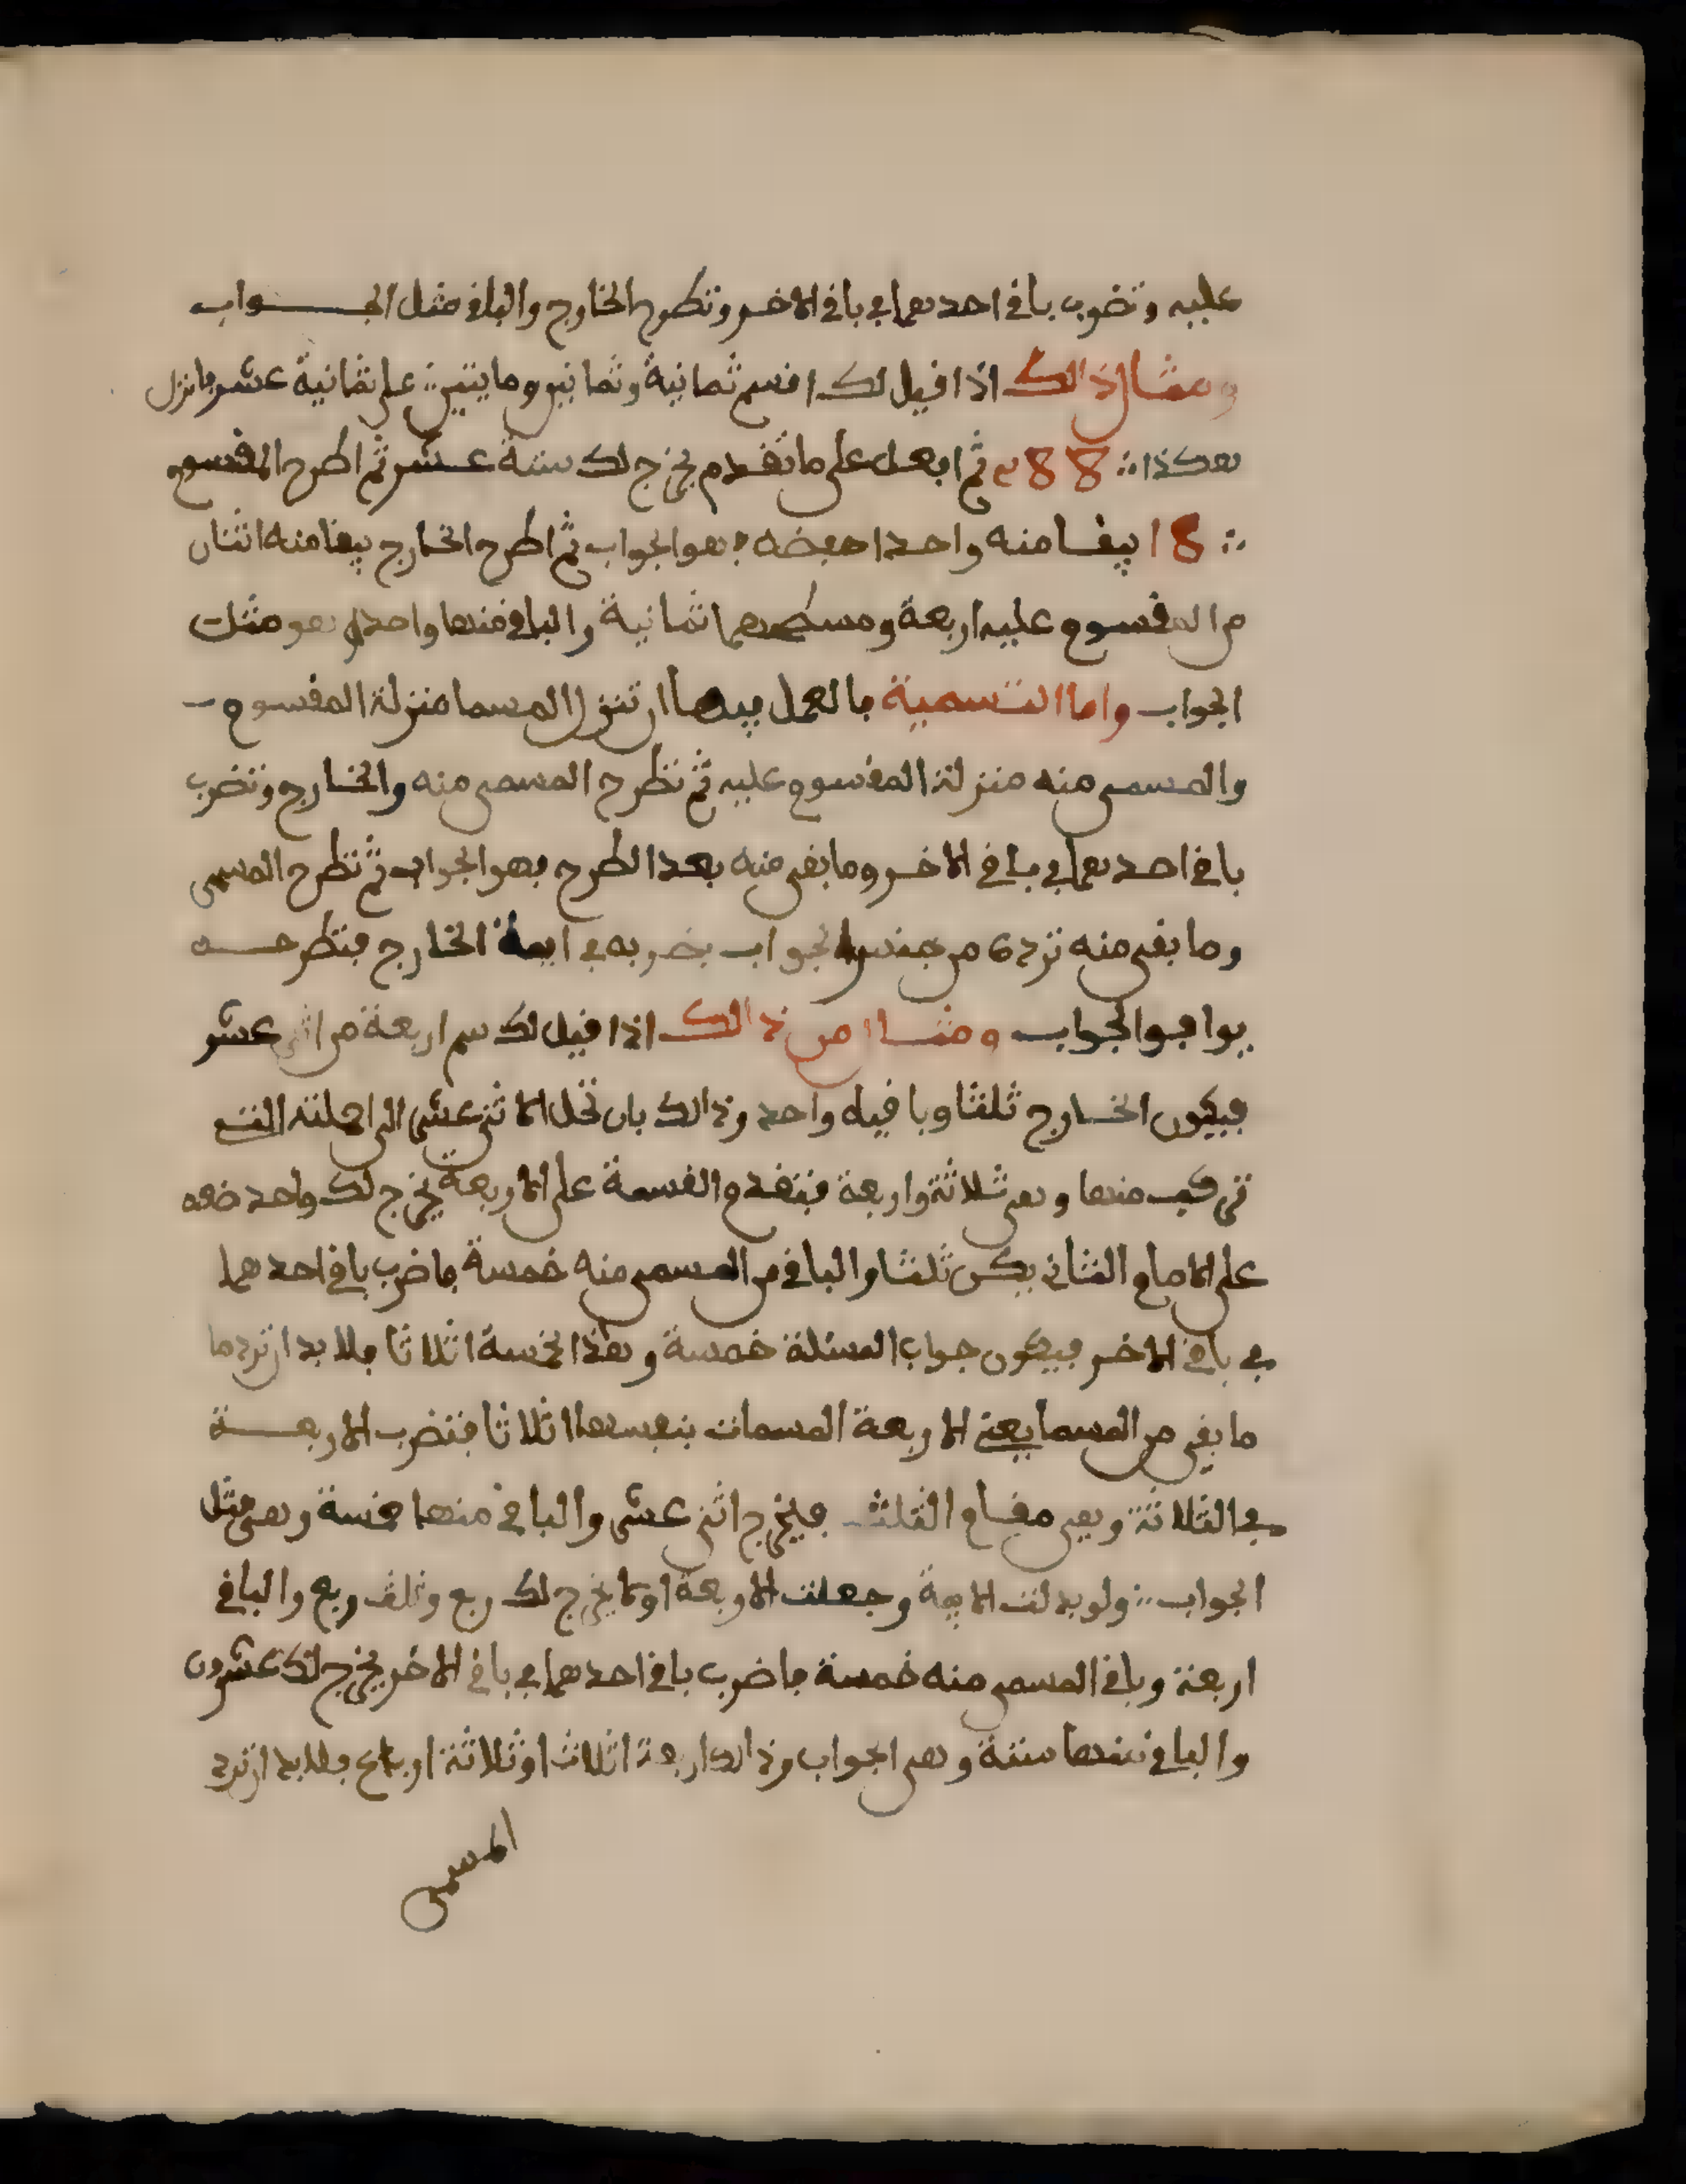 عليه وتضرب باقي احدهما في باقي الاخر وتطرح الخارج والباقي مثل الجواب
ومثال ذالك اذا قيل لك اقسم ثمانية وثمانين ومايتين على ثمانية عشر فانزل
هكذا ∴ 288 ثم افعل على ما تقدم يخرج لك ستة عشر ثم اطرح المقسوم
∴ 18 يبقا منه واحدا فهو الجواب ثم اطرح الخارج يبقا منه اثنان
من المقسوم عليه اربعة ومسطحهما ثمانية والباقي منها واحد وهو مثل
الجواب واما التسمية فالعمل فيها ان تنزل المسما منزلة المقسوم
والمسمى منه منزلة المقسوم عليه ثم تطرح المسمى منه والخارج وتضرب
باقي احدهما في باقي الاخر وما بقى منه بعد الطرح فهو الجواب ثم تطرح المسمى
وما بقى منه ترده من جنس الجواب بضربه في ايمة الخارج فتطرحه
يوافق الجواب ومثال من ذالك اذا قيل لك سم اربعة من اثنى عشر
فيكون الخارج ثلثا وباقيه واحد وذالك بان تحل الاثنى عشر الى ايمته التى
تركب منها وهى ثلاثة واربعة فتقدم القسمة على الاربعة يخرج لك واحد ضعه
على الامام الثانى يكن ثلثا والباقي من المسمى منه خمسة فاضرب باقي احدهما
في باقي الاخر فيكون جواب المسئلة خمسة وهذا الخمسة اثلاثا فلا بد ان ترد ما
ما بقى من المسما يعنى الاربعة المسمات بنفسها اثلاثا فتضرب الاربعة
في الثلاثة وهى مقام الثلث فيخرج اثنى عشر والباقي منها خمسة وهى مثل
الجواب ∴ ولو بدلت الايمة وجعلت الاربعة اولا يخرج لك ربع وثلث ربع والباقي
اربعة وباقي المسمى منه خمسة فاضرب باقي احدهما في باقي الاخر يخرج لك عشرون
والباقي منها ستة وهى الجواب وذالك اربعة اثلاث او ثلاثة ارباع فلا بد ان ترد
المسمى